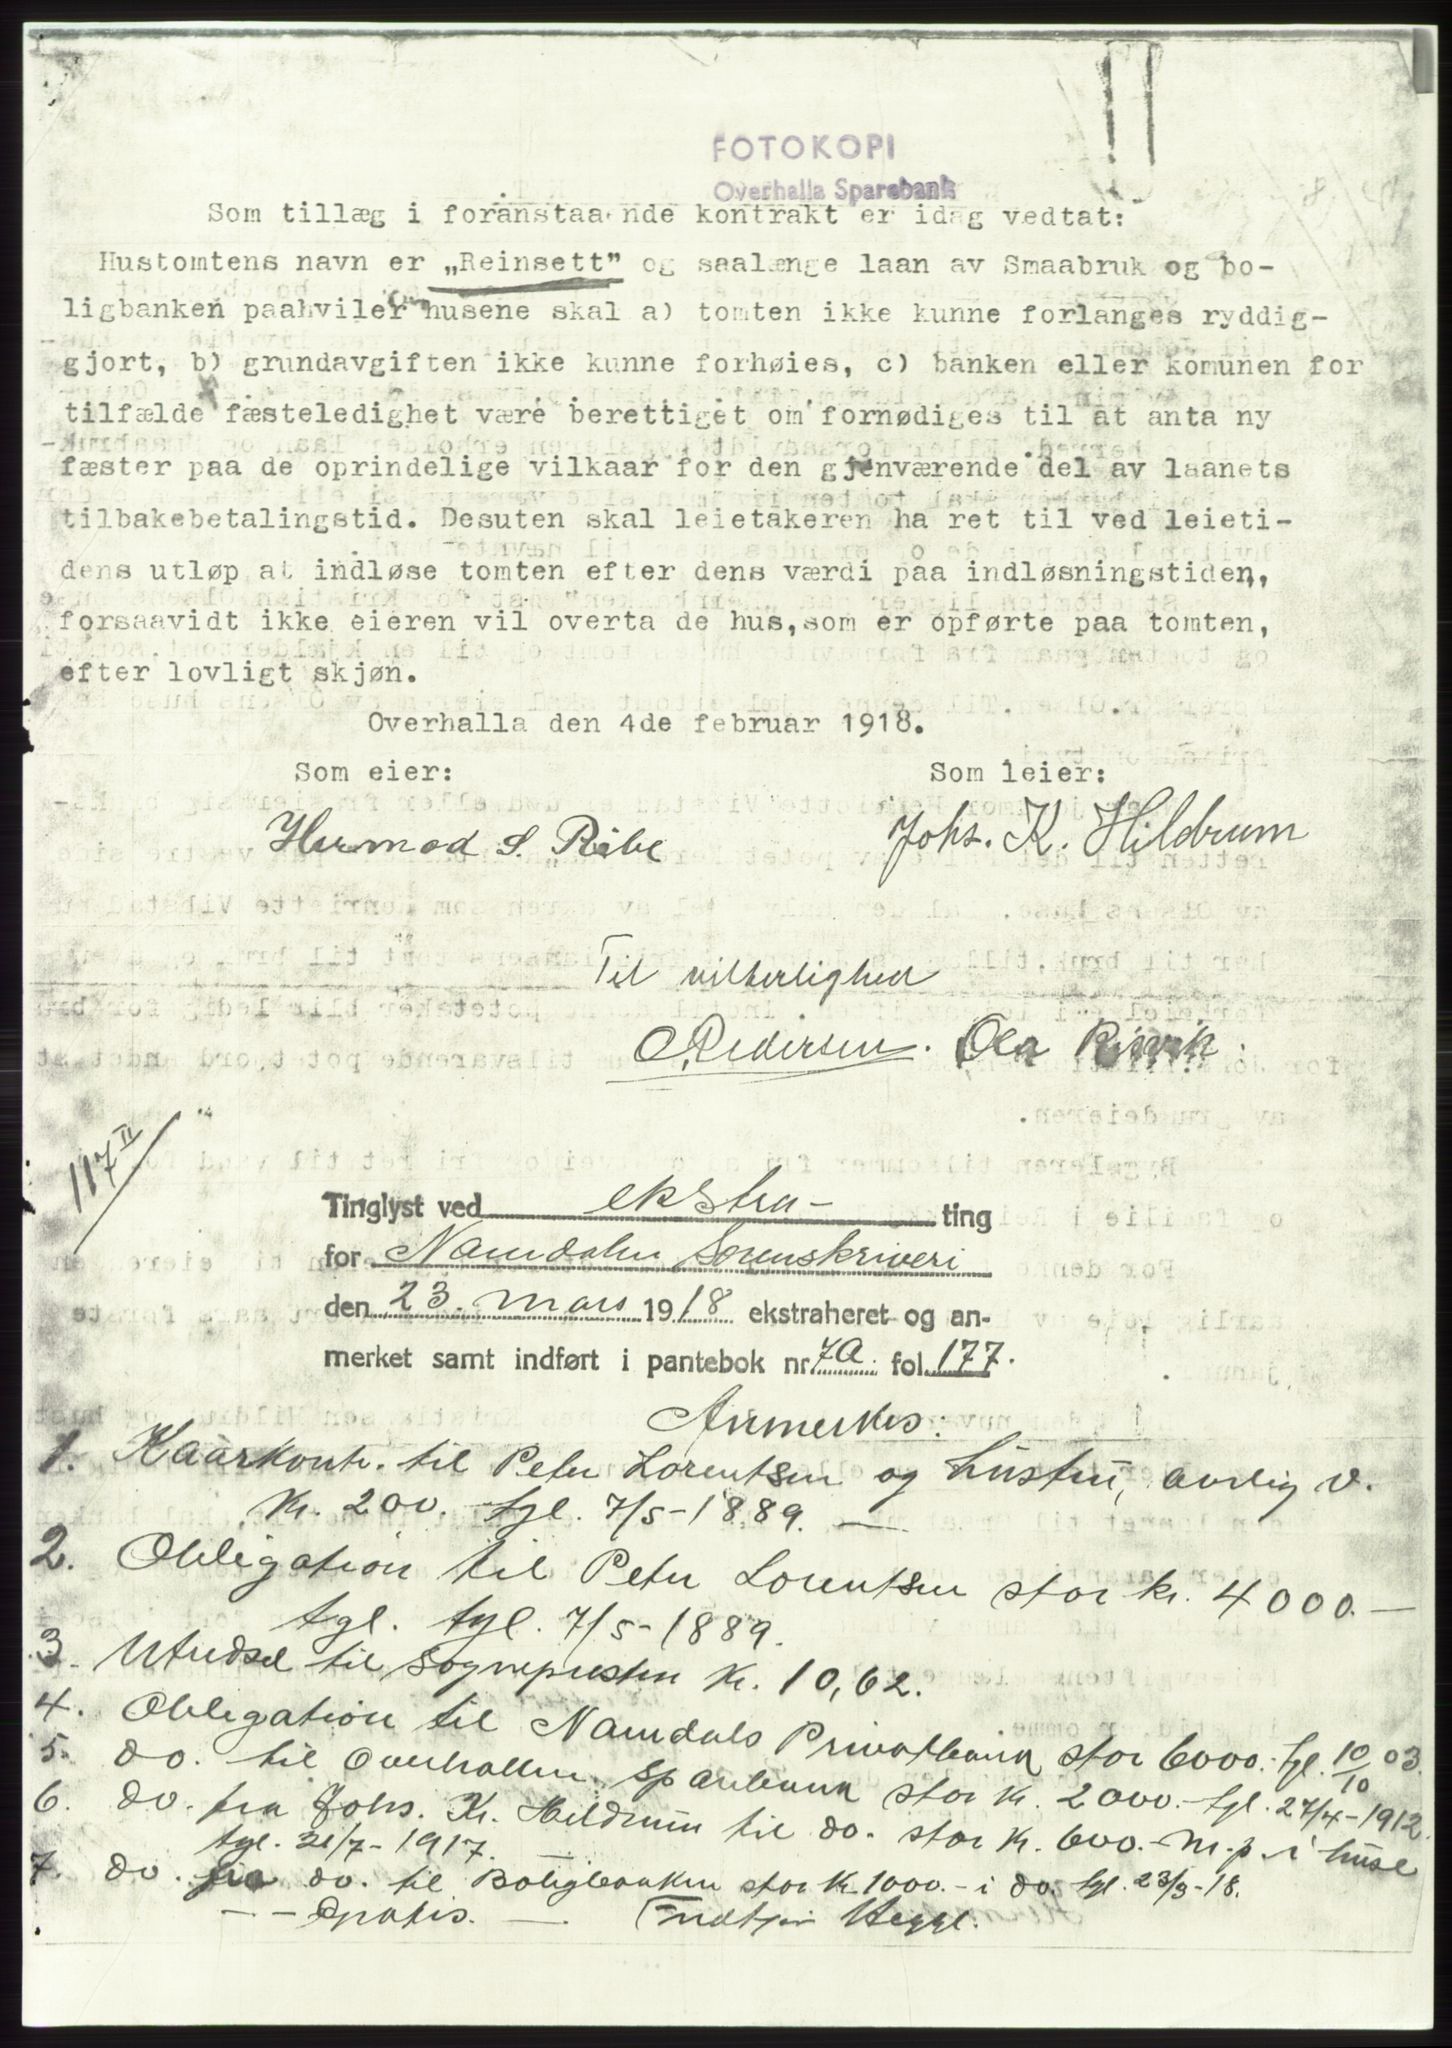 FOTOKOPI
Overhalla Sparebank
Som tillæg i foranstaaende kontrakt er idag vedtat:
Hustomtens navn er „Reinsett" og saalænge laan av Smaabruk og bo-
ligbanken paahviler husene skal a) tomten ikke kunne forlanges ryddig-
gjort, b) grundavgiften ikke kunne forhøies, c) banken eller komunen for
tilfælde fæsteledighet være berettiget om fornødiges til at anta ny
fæster paa de oprindelige vilkaar for den gjenværende del av laanets
tilbakebetalingstid. Desuten skal leietakeren ha ret til ved leieti-
dens utløp at indløse tomten efter dens værdi paa indløsningstiden,
forsaavidt ikke eieren vil overta de hus, som er opførte paa tomten,
efter lovligt skjøn.
Overhalla den 4de februar 1918.
Som eier: Som leier:
Hermod S. Ribe Johs. K. Hildrum
Til vitterlighed
Pedersen. Ola
117 II
Tinglyst ved ekstra- ting
for Namdalen Sorenskriveri
den 23. mars 1918 ekstraheret og an-
merket samt indført i pantebok nr 7A. fol. 177.
Anmerkes:
1. Kaarkontr. til Peter Lorentsen og hustru, aarlig v.
Kr. 200. tgl. 7/5-1889.
2. Obligation til Peter Lorentsen stor kr. 4000.—
tgl. tgl. 7/5-1889.
3. til Sognepresten Kr. 10,62.
4. Obligation til Namdals Privatbank stor 6000.- tgl. 10/10 03.
5. do. til Overhallen Sparebank stor Kr. 2000.- tgl. 27/4-1912.
6. do. fra Johs. Kr. Hildrum til do. stor Kr. 600.- m. p. i huse
tgl. 31/7-1917.
7. do. fra do. til Boligbanken stor Kr 1000.- i do. tgl. 23/3-18.
- - Gratis. —